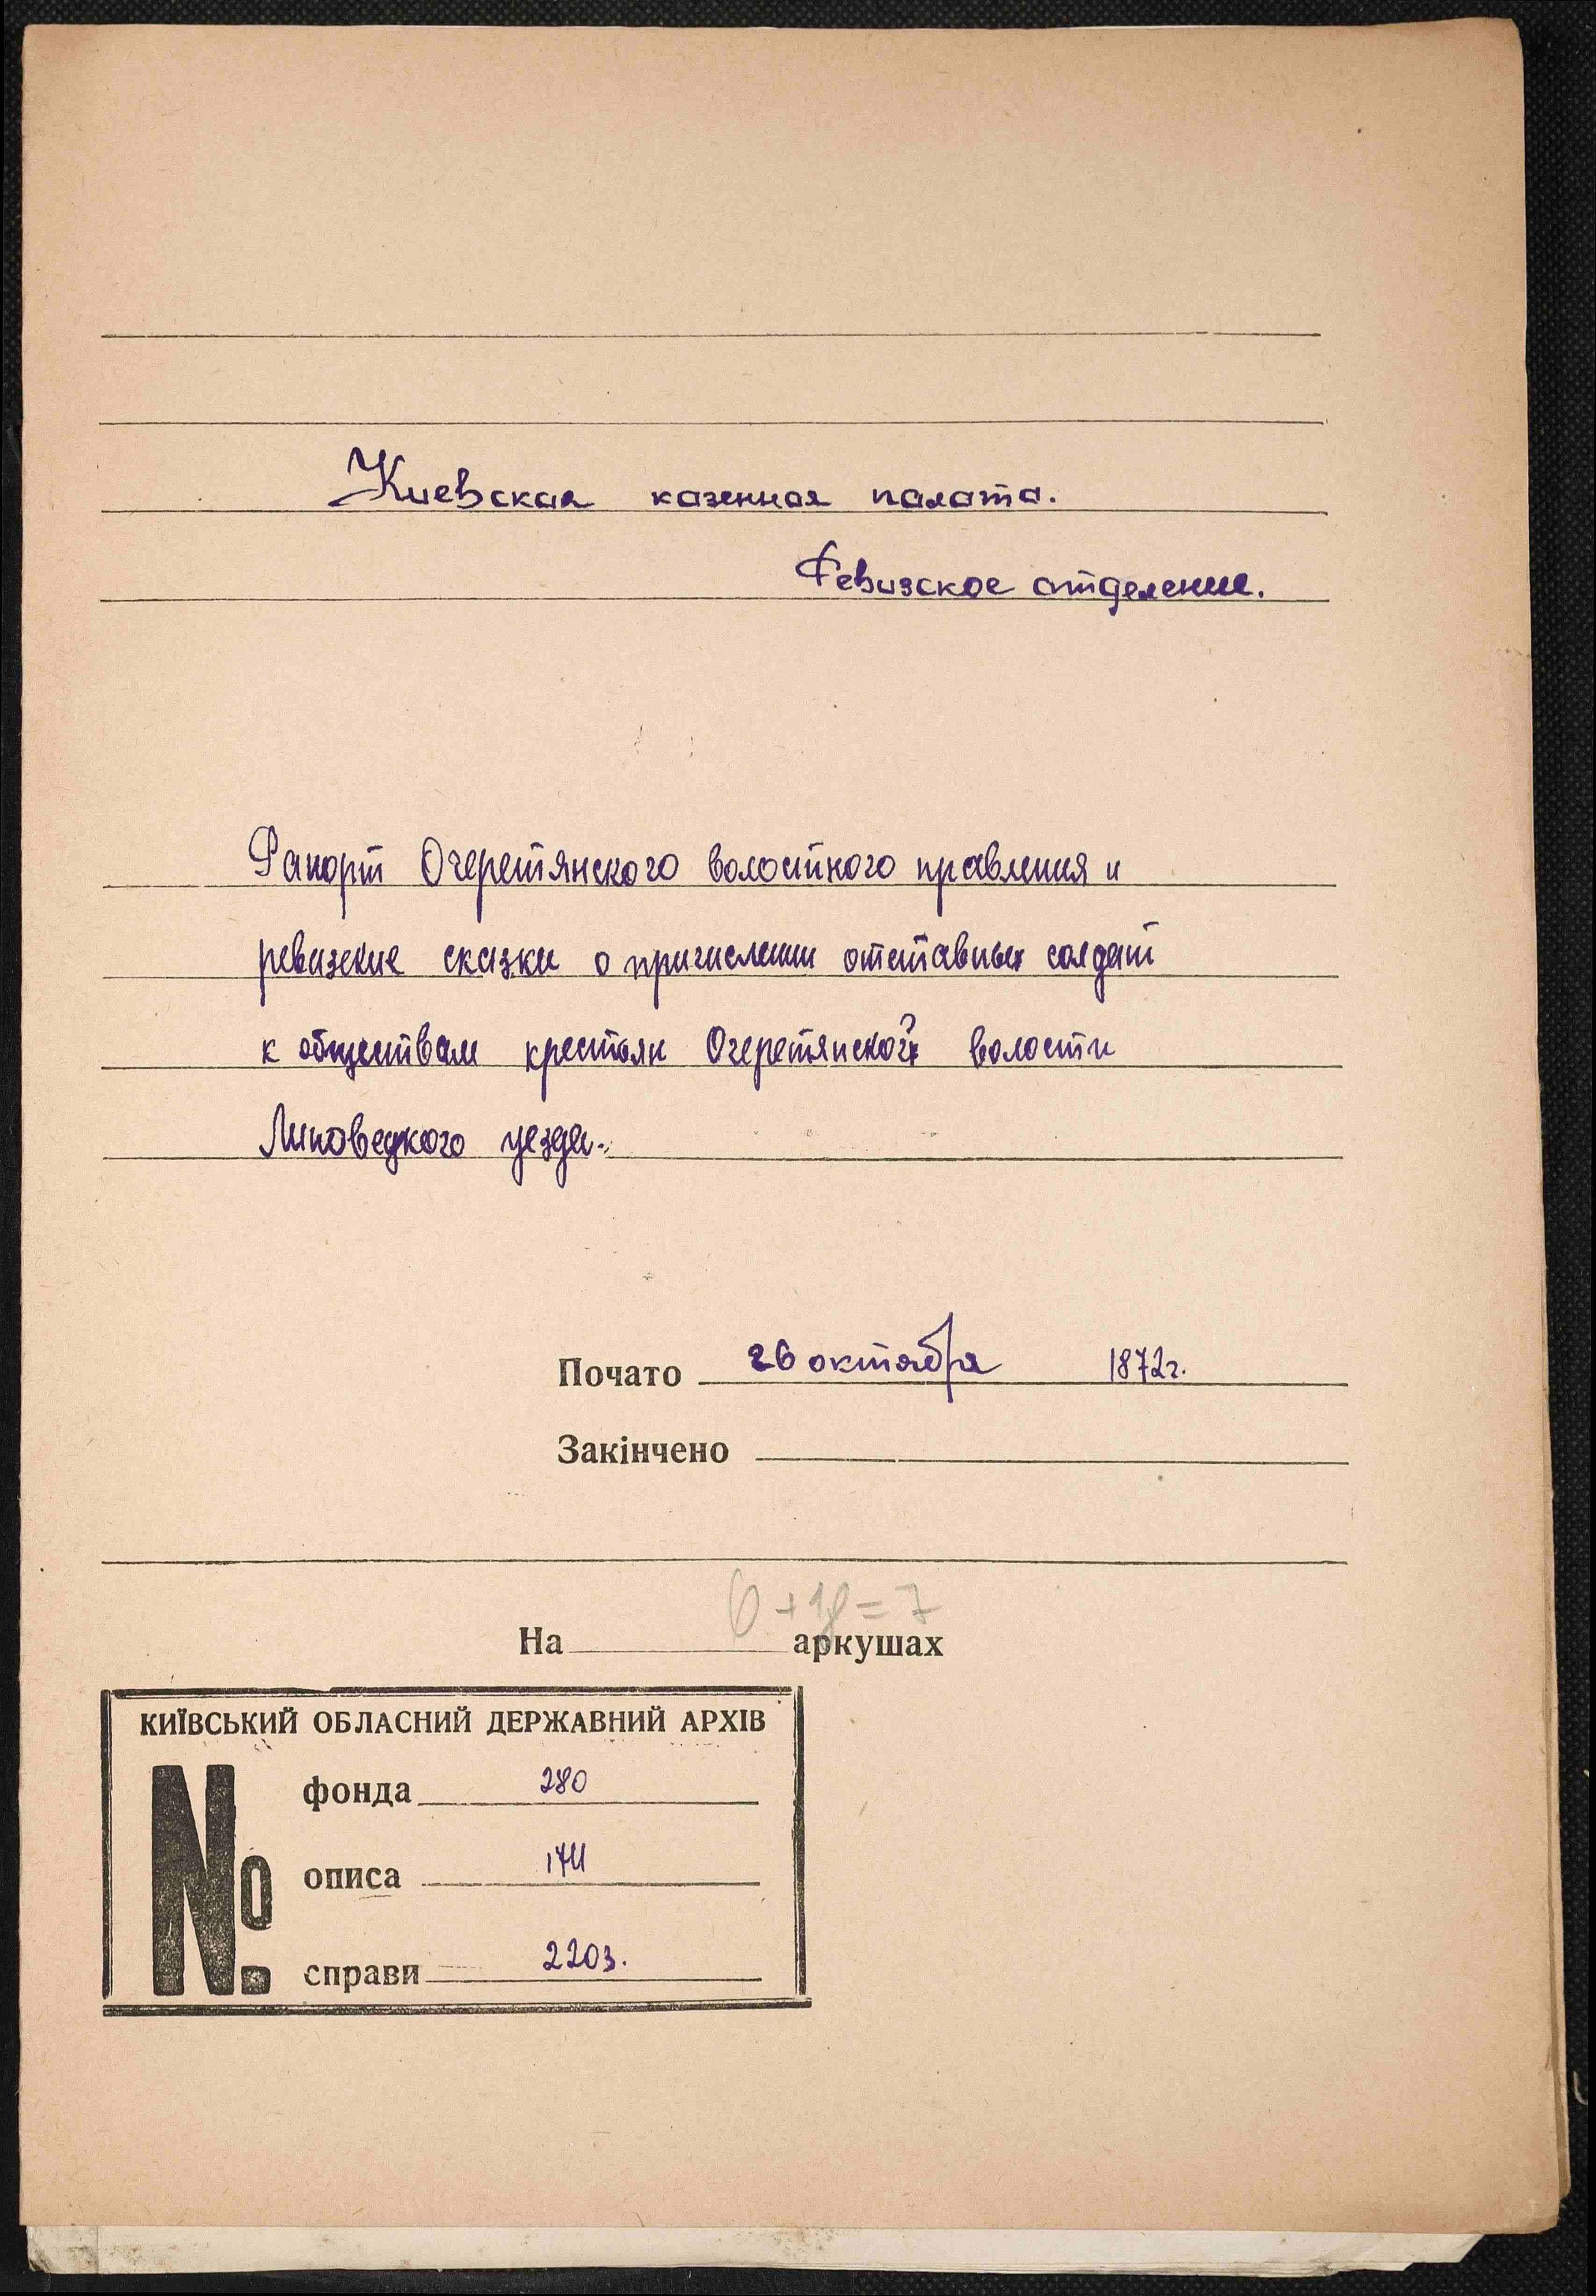 Киевская казенная палата.
Ревизское отделение.
Рапорт Очеретянского волостного правления и
ревизские сказки о причислении отставных солдат
к обществам крестьян Очеретянской волости
Липовецкого уезда.
Почато 26 октября 1872 г.
Закінчено
6 + 1 = 7
На аркушах
КИЇВСЬКИЙ ОБЛАСНИЙ ДЕРЖАВНИЙ АРХІВ
№
фонда 280
описа 174
справи 2203.